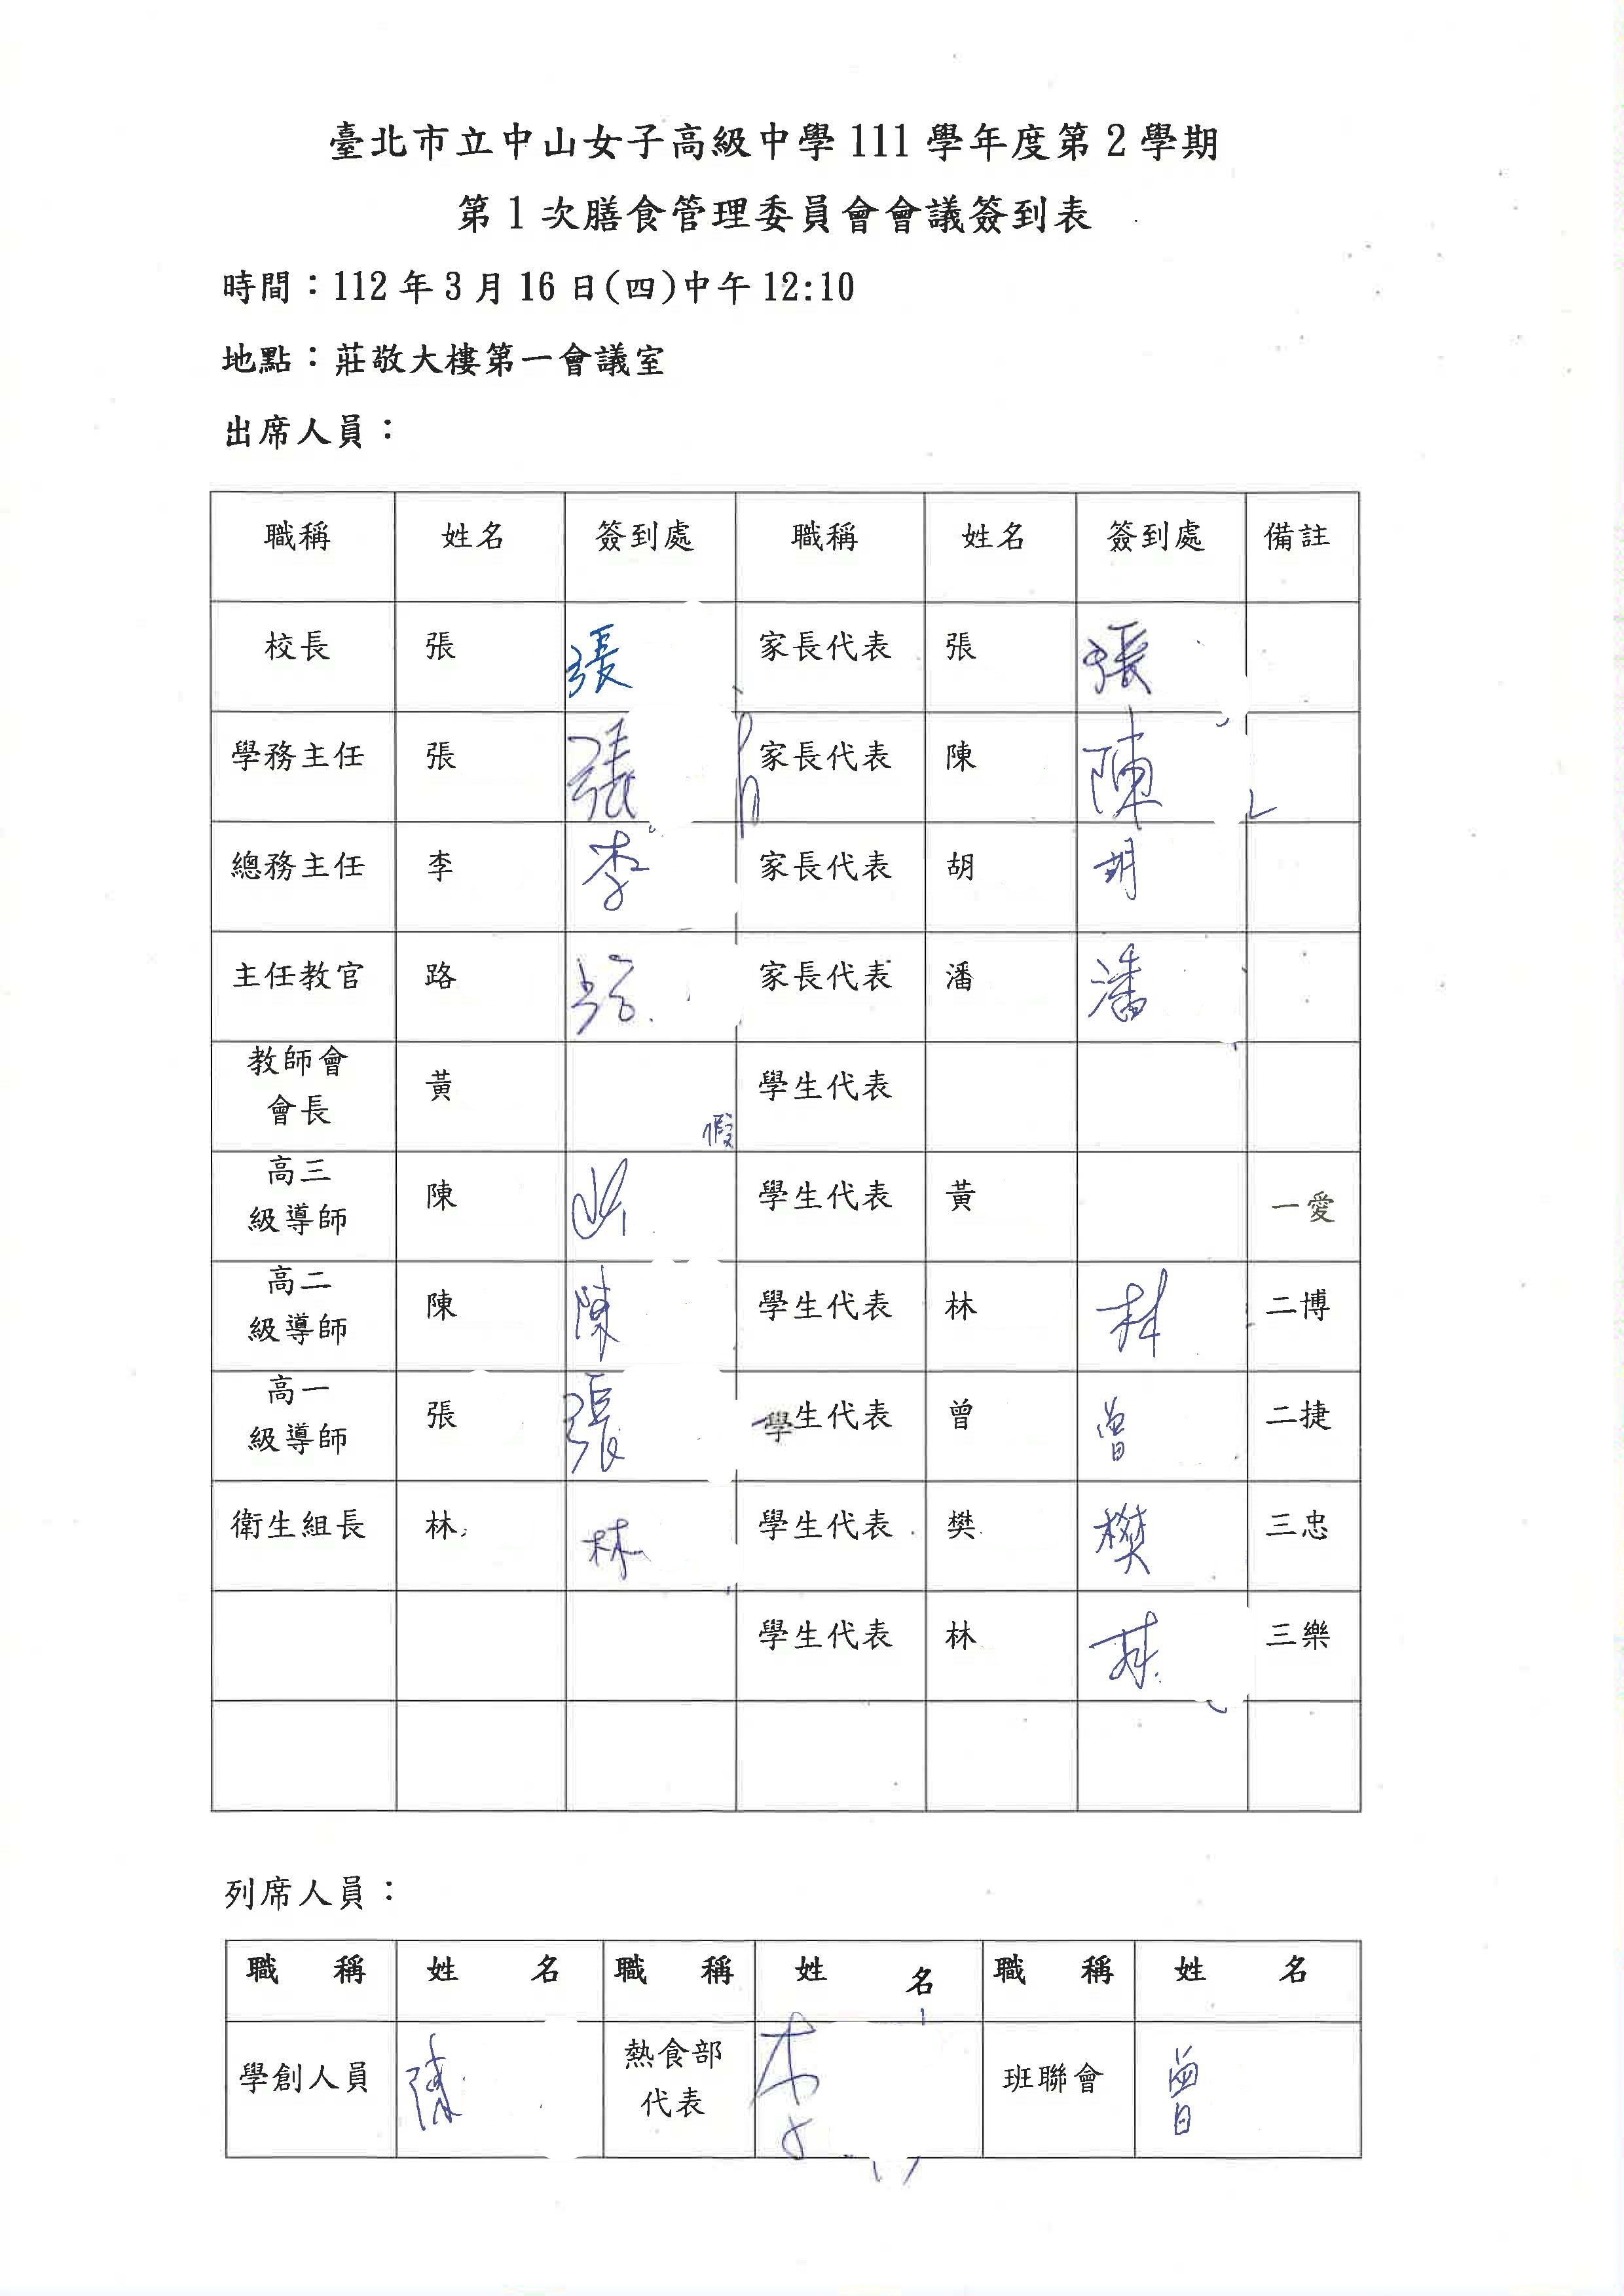 臺北市立中山女子高級中學111學年度第2學期
第1次膳食管理委員會會議簽到表
時間：112年3月16日(四)中午12:10
地點：莊敬大樓第一會議室
出席人員：
職稱 姓名 簽到處 職稱 姓名 簽到處 備註
校長 張 張 家長代表 張 張
學務主任 張 張 家長代表 陳 陳
總務主任 李 李 家長代表 胡 胡
主任教官 路 路 家長代表 潘 潘
教師會
會長 黃 假 學生代表
高三
級導師 陳 學生代表 黃 一愛
高二
級導師 陳 陳 學生代表 林 林 二博
高一
級導師 張 張 學生代表 曾 曾 二捷
衛生組長 林 林 學生代表 樊 樊 三忠
學生代表 林 林 三樂
列席人員：
職稱 姓名 職稱 姓名 職稱 姓名
學創人員 陳 熱食部
代表 李 班聯會 曾